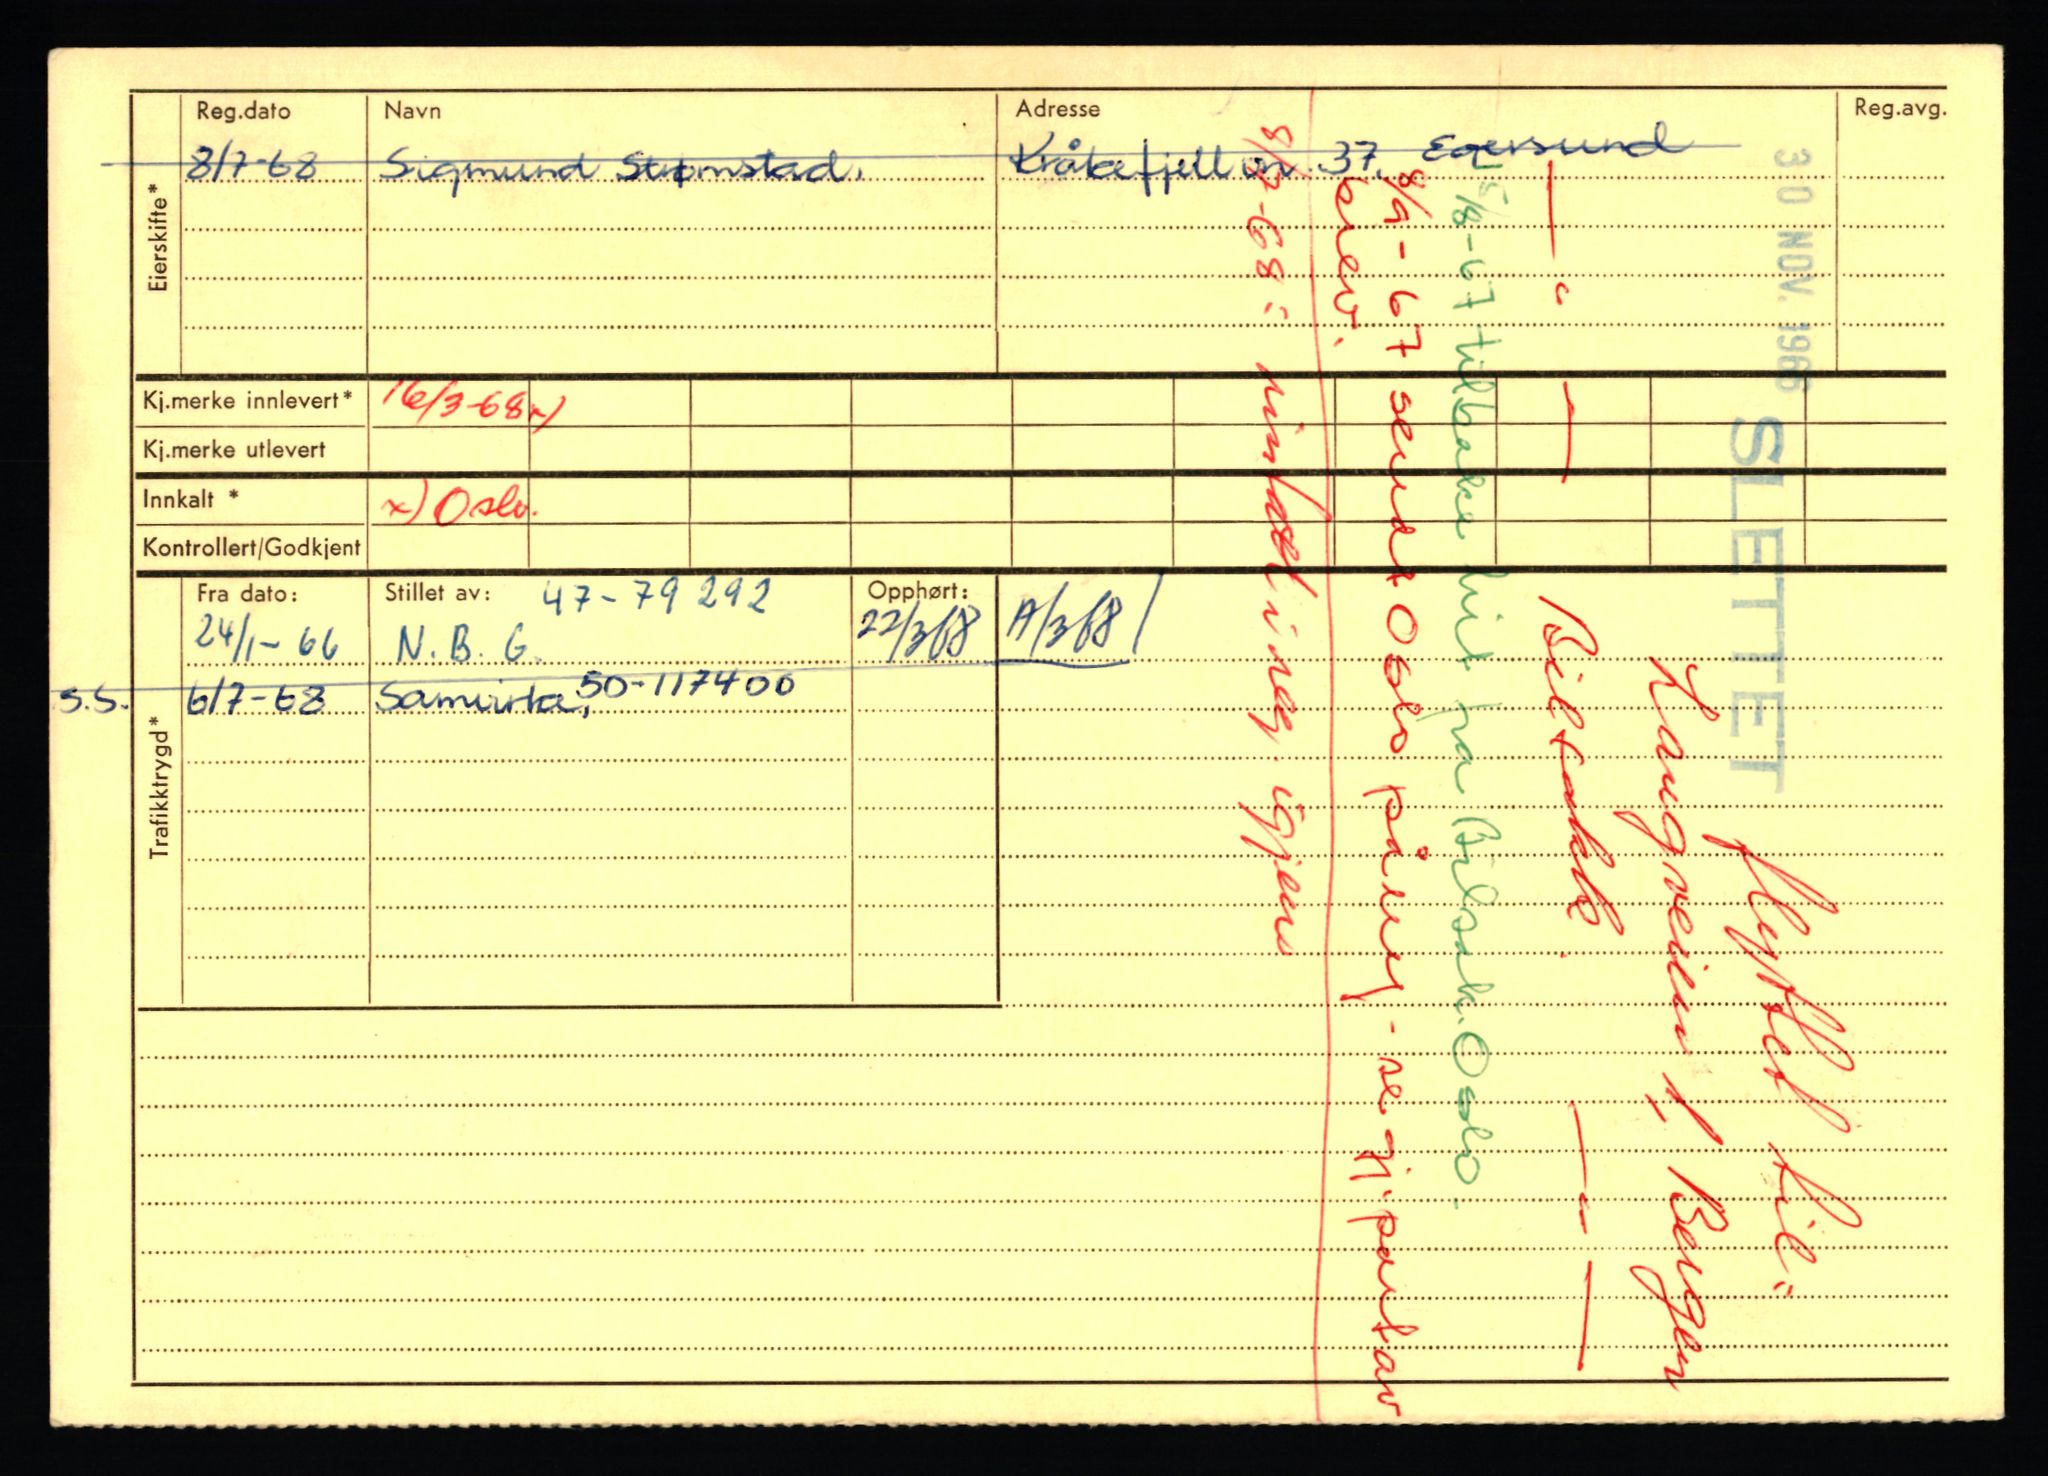 Reg.dato Navn Adresse Reg.avg.
8/7-68 Sigmund Strømstad. Kråkefjellvn. 37. Egersund
Eierskifte*
Kj.merke innlevert* 16/3-68 x)
Kj.merke utlevert
Innkalt * x) Oslo.
Kontrollert/Godkjent
Fra dato: Stillet av: 47-79292 Opphørt:
24/1-66 N.B.G. 22/3/68 A/3/68
S.S. 6/7-68 Samvirke, 50-117400
Trafikktrygd*
30 NOV. 1966 SLETTET
flyttet til:
Haugveien 1, Bergen
— " — — Bilsakk. — " —
15/8-67 tilbake hit fra Bilsak. Oslo.
8/9-67 sendt Oslo påny - se gj.part av
brev.
8/7-68: inntatt i reg. igjen